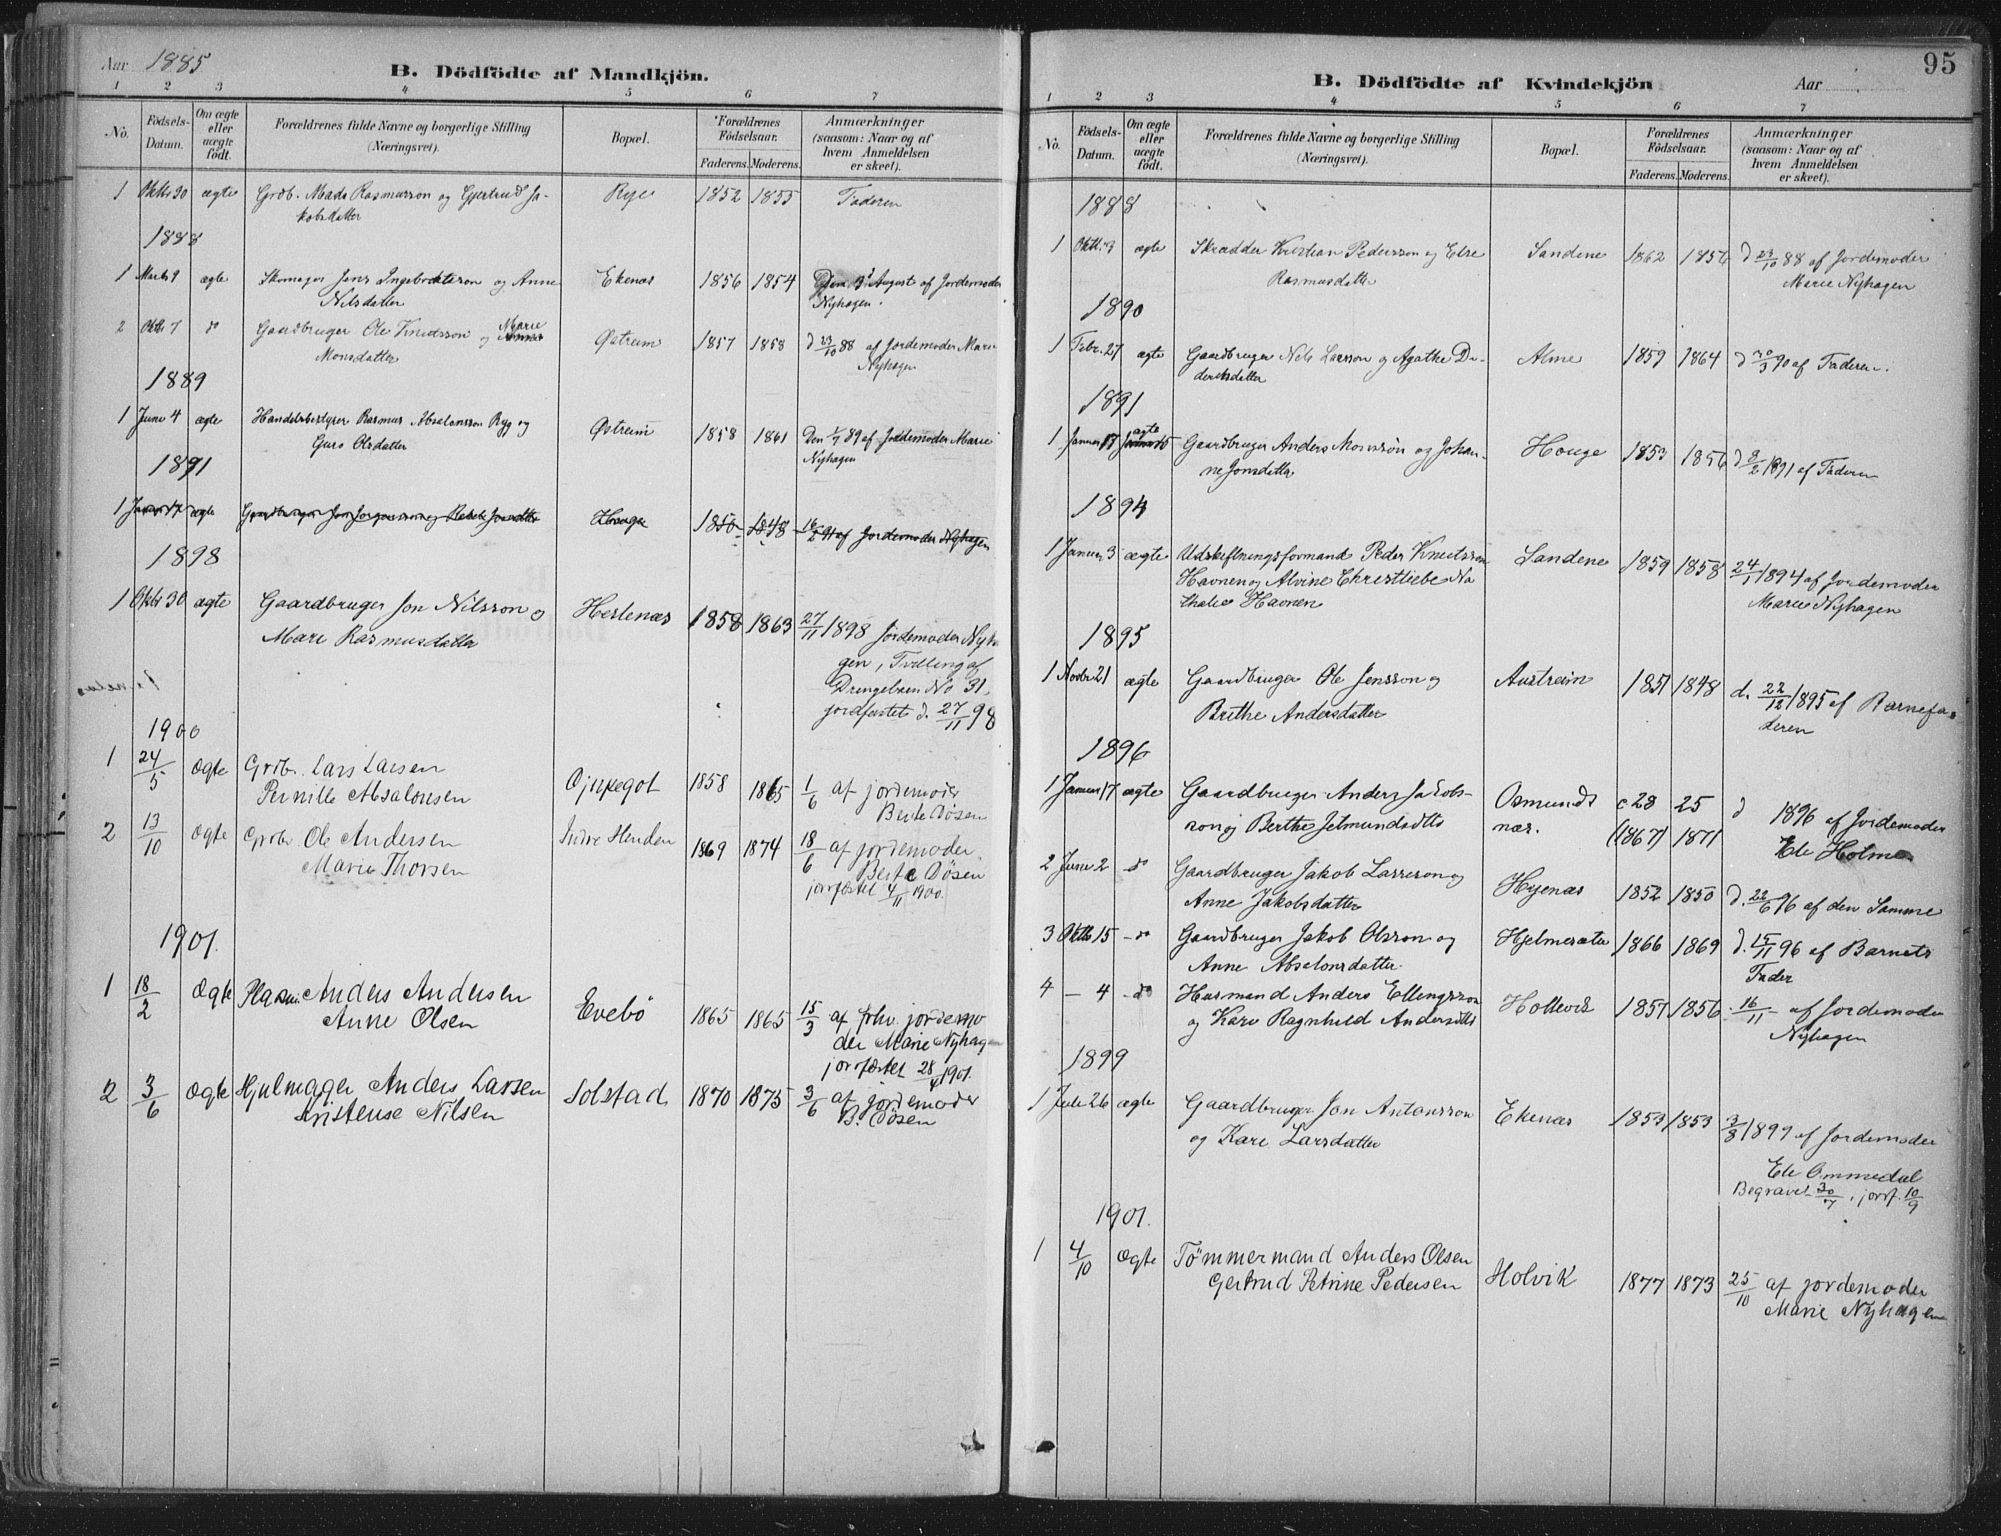 Aar 1885
B. Dödfödte af Mandkjön.
1 2 3 4 5 6 7
No.
Födsels-
Datum.
Om ægte
eller
uægte
födt.
Forældrenes fulde Navne og borgerlige Stilling
(Næringsvei).
Bopæl.
Forældrenes
Födselsaar.
Faderens. Moderens.
Anmærkninger
(saasom: Naar og af
hvem Anmeldelsen
er skeet).
1 Oktbr 30 ægte Grdb. Mads Rasmusson og Gjertrud Ja- Rye 1852 1855 Faderen
kobsdatter
1888
1 Marts 9 ægte Skomager Jens Ingebrektsson og Anne Ekenæs 1856 1854 August af Jordemoder
Nilsdatter Nyhagen.
2 Oktbr 7 do Gaardbruger Ole Knutsson og Marie Østreim 1857 1858 d 23/10 88 af Jordemoder Marie
Monsdatter Nyhagen
1889
1 Juni 4 ægte Handelsbestyrer Rasmus Absalonsson Ryg og Østreim 1858 1861 Den 1/7 89 af Jordemoder Marie
Guro Olsdatter Nyhagen
1891
1 Januar 17 ægte Gaardbruger Jon 1850 1848 16/2 91 af Jordemoder Nyhagen
1898
1 Oktbr 30 ægte Gaardbruger Jon Nilsson og Hestenæs 1858 1863 27/11 1898 Jordemoder Nyha
Mari Rasmusdatter gen, Tvilling af
Drengebarn No 31,
jordfæstet d. 27/11 98
1900
1 24/5 Ægte Grdb. Lars Larsen Gjupegot 1858 1865 1/6 af jordemoder
Pernille Absalonsen Berte Bösen
2 13/10 Ægte Grdbr. Ole Andersen Indre Henden 1869 1874 18/6 af jordemoder
Marie Thorsen Berte Bösen
jorfæstet 4/11 1900.
1901.
1 18/2 Ægte Anders Andersen Evebö 1865 1865 15/3 af frhv. jordemo
Anne Olsen der Marie Nyhagen
jorfæstet 28/4 1901.
2 3/6 Ægte Hjulmager Anders Larsen Solstad 1870 1875 3/6 af jordemoder
Kristense Nilsen B. Bösen
95
B. Dödfödte af Kvindekjön
Aar
1 2 3 4 5 6 7
No.
Födsels-
Datum.
Om ægte
eller
uægte
födt.
Forældrenes fulde Navne og borgerlige Stilling
(Næringsvei).
Bopæl.
Forældrenes
Födselsaar.
Faderens. Moderens.
Anmærkninger
(saasom: Naar og af
hvem Anmeldelsen
er skeet).
1888
1 Oktb. 9 ægte Skrædder Kristian Pedersson og Else Sandene 1862 1856 d 23/10 88 af Jordemoder
Rasmusdatter Marie Nyhagen
1890
1 Febr. 27 ægte Gaardbruger Nils Larsson og Agathe Di- Alme 1859 1864 d 30/3 90 af Faderen.
deriksdatter
1891
1 Januar 17 ægte Gaardbruger Anders Monsson og Johan- Houge 1853 1856 d 8/2 1891 af Faderen
ne Jonsdatter
1894
1 Januar 3 ægte Udskiftningsformand Peder Knutsson Sandene 1859 1858 24/1 1894 af Jordemoder
Havnen og Alvine Christliebe Na Marie Nyhagen
thalie Havnen
1895
1 Novbr 21 ægte Gaardbruger Ole Jensson og Austreim 1851 1848 d. 22/12 1895 af Barnefa-
Brithe Andersdatter deren
1896
1 Januar 17 ægte Gaardbruger Anders Jakobs- Osmunds c 28 25 d 1896 af Jordemoder
son og Berthe Jetmundsdtr næs. (1867) 1871 Ele Holme
2 Juni 2 do Gaardbruger Jakob Larsson og Hyenæs 1852 1850 d. 22/6 96 af den Samme
Anne Jakobsdatter
3 Oktb 15 do Gaardbruger Jakob Olsson og Hjelmesæter 1866 1869 d. 15/11 96 af Barnets
Anne Absalonsdatter. Fader
4 — 4 do Husmand Anders Ellingsson Holtevik 1857 1856 16/11 af Jordemoder
og Kari Ragnhild Andersdtr Nyhagen
1899
1 Juli 26 ægte Gaardbruger Jon Antonsson Ekenæs 1853 1853 3/8 1899 af Jordemoder
og Kari Larsdatter Ele Ommedal
Begravet 30/7, jorf. 10/9
1901.
1 4/10 Ægte Tömmermand Anders Olsen Holvik 1877 1873 25/10 af jordemoder
Gertrud Petrine Pedersen Marie Nyhagen